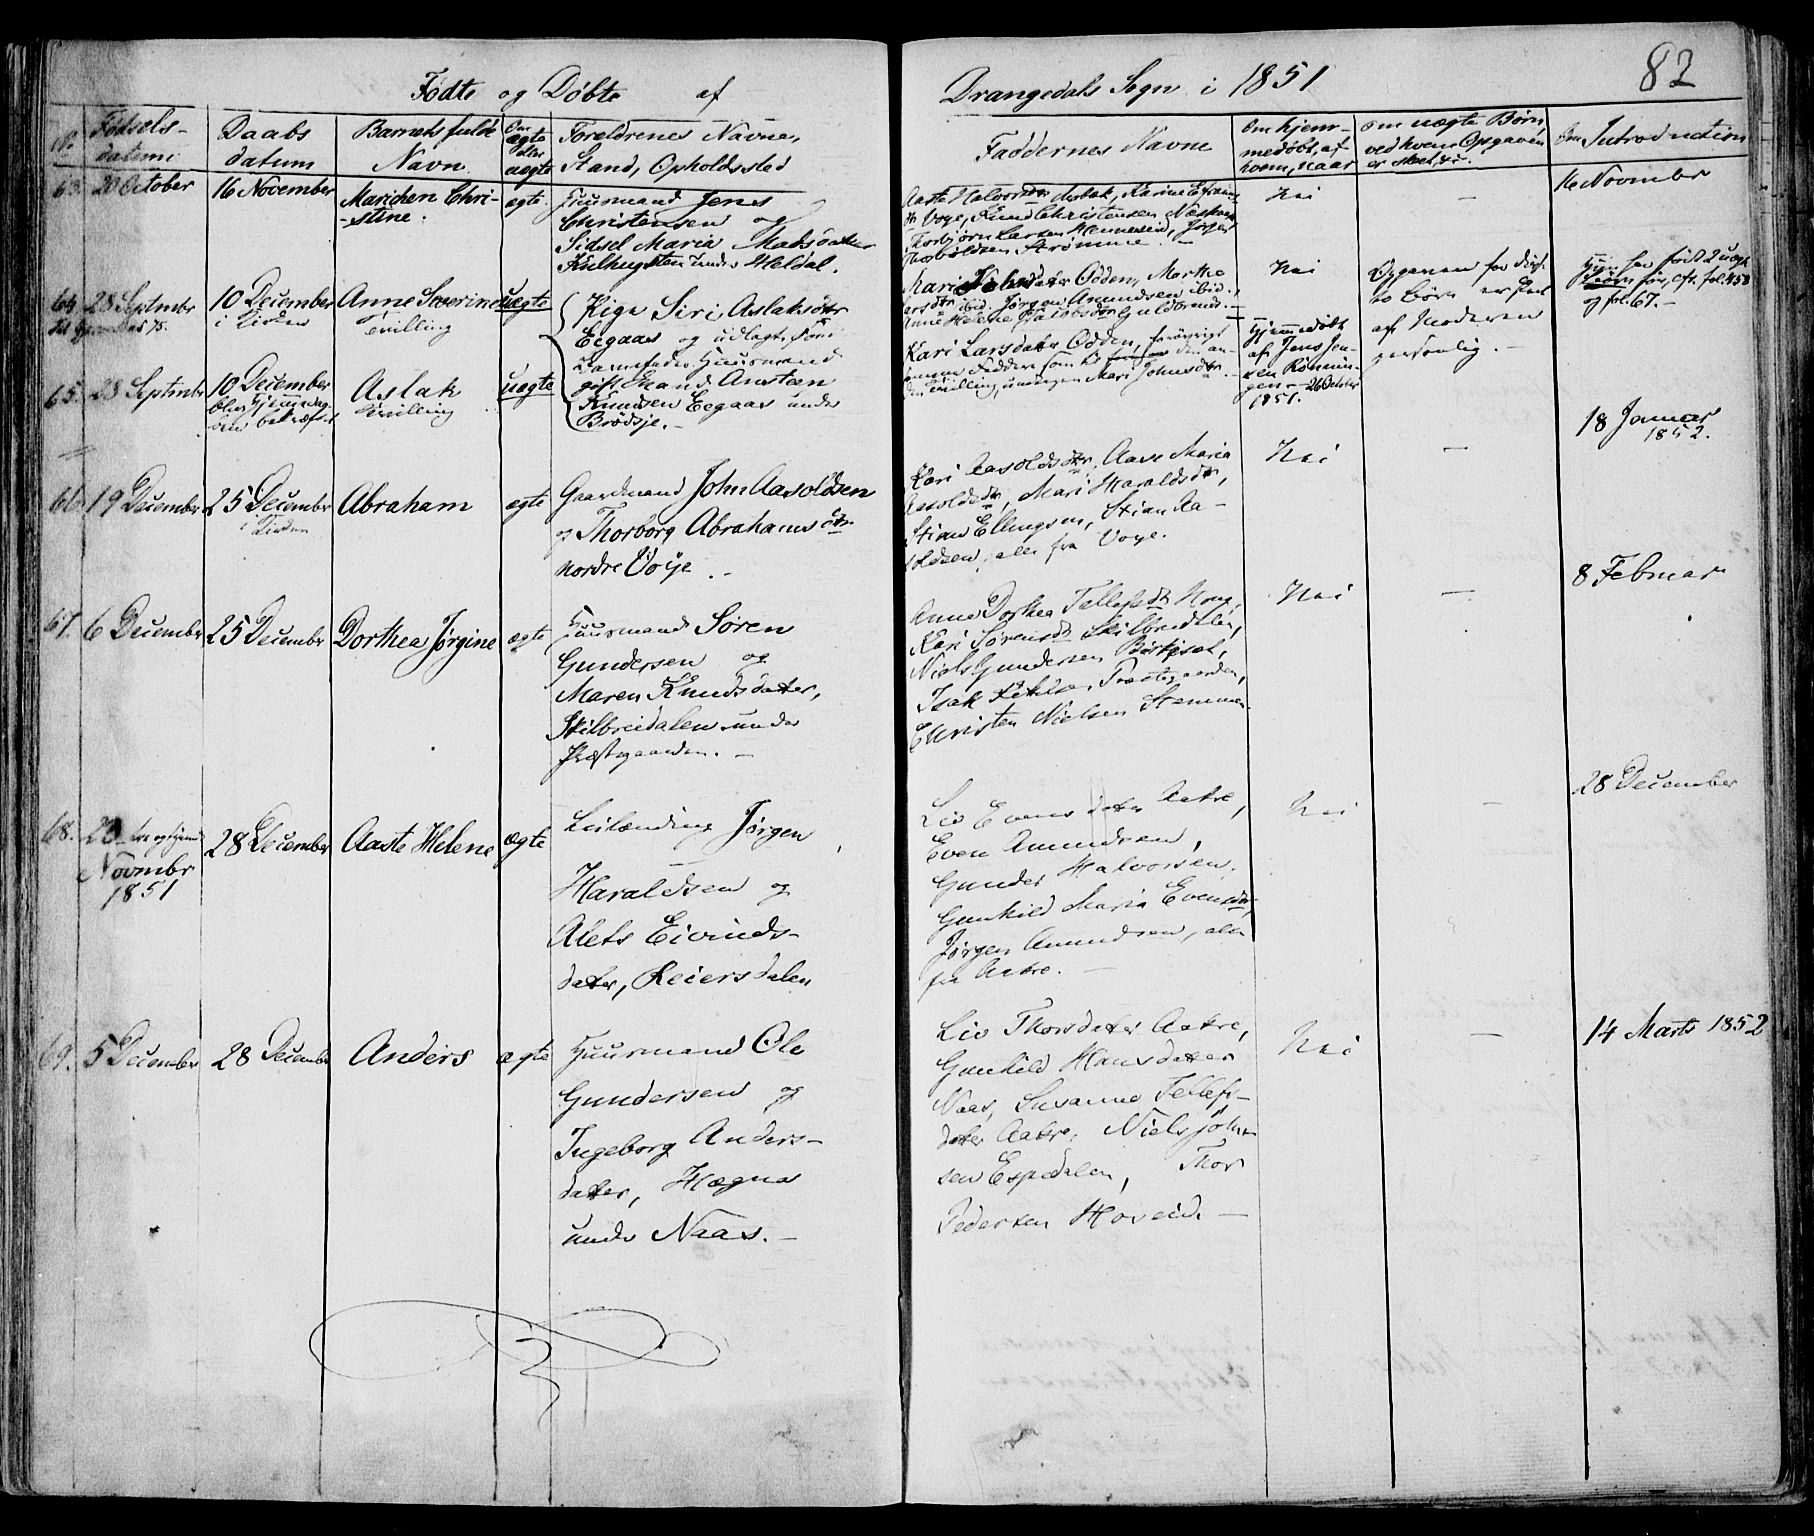 82
Fødte og Døbte af Drangedals Sogn i 1851
N. Fødselsdatum
Daabsdatum
Barnets fulde Navn
Om ægte eller uægte
Foreldrenes Navne, Stand, Opholdssted
Faddernes Navne
Om hjemmedøbt, af hvem, naar
Om uægte Børn, ved hvem Opgaven er skeet &c.
Om Introduction
63. 20 October
16 November
Marichen Christine.
ægte.
Huusmand Jens
Christensen og
Sidsel Maria Madsdatter
under Heldal.
Aaste Halvorsdtr
Voje, Knud Christensen
Thorbjørn Larsen Henneseid, Jørgen
Strømme. –
Nei
–
16 Novembr
64. 28 Septembr
10 December
i Kirken
Anne Severine
Tvilling
uægte
Pige Siri Aslaksdtr
Eegaas og udlagt som
Barnefader Huusmand
gift Mand Austeen
Knudsen Eegaas under
Brødsje. –
Mari Johnsdatter Odden, Marthe
Larsdtr ibid. Jørgen Amundsen ibid.,
Anne Helene Jacobsdtr
Nei
Opgaven for disse
to Børn er skeet
af Moderen
personlig. –
har født 2 uægte
Børn før, cfr. fol. 458
og fol. 67. –
65. 28 Septembr
10 December
Aslak
Tvilling
uægte
Kari Larsdatter Odden, forøvrigt
samme Faddere som til den anden
Tvilling, undtagen Mari Johnsdtr.
Hjemmedøbt
af Jens Jensen
Rønningen –
26 October
1851.
66. 19 December
25 December
i Kirken
Abraham
ægte
Gaardmand John Aasoldsen
og Thorborg Abrahamsdtr
nordre Voje. –
Kari Aasoldsdtr, Aase Maria
Aasoldsdtr, Mari Haraldsdtr,
Stian Ellingsen, Stian Aasoldsen,
alle fra Voje.
Nei
–
18 Januar
1852.
67. 6 December
25 December
Dorthea Jørgine
ægte
Huusmand Søren
Gundersen og
Maren Knudsdatter,
Skilbreidalen under
Præstegaarden. –
Anne Dorthea Tellefsdtr
Kari Sørensdtr Skilbreidalen,
Niels Gundersen
Isak Præstegaarden,
Christen Nielsen Stemmen
Nei
–
8 Februar
68.
Novembr
1851
28 December
Aaste Helene
ægte
Leilænding Jørgen
Haraldsen og
Alets Eivindsdatter,
Reiersdalen
Liv Evensdatter Aakre,
Even Amundsen,
Gunder Halvorsen,
Gunhild Maria Evensdtr,
Jørgen Amundsen, alle
fra Aakre. –
Nei
–
28 December
69. 5 December
28 December
Anders
ægte
Huusmand Ole
Gundersen og
Ingeborg Andersdatter,
Hægna
under Naas. –
Liv Thorsdatter Aakre,
Gunhild Hansdatter
Naas, Susanne Tellefsdatter
Aakre, Niels Johnsen
Espedalen, Thor
Pedersen Hoseid. –
Nei
–
14 Marts 1852